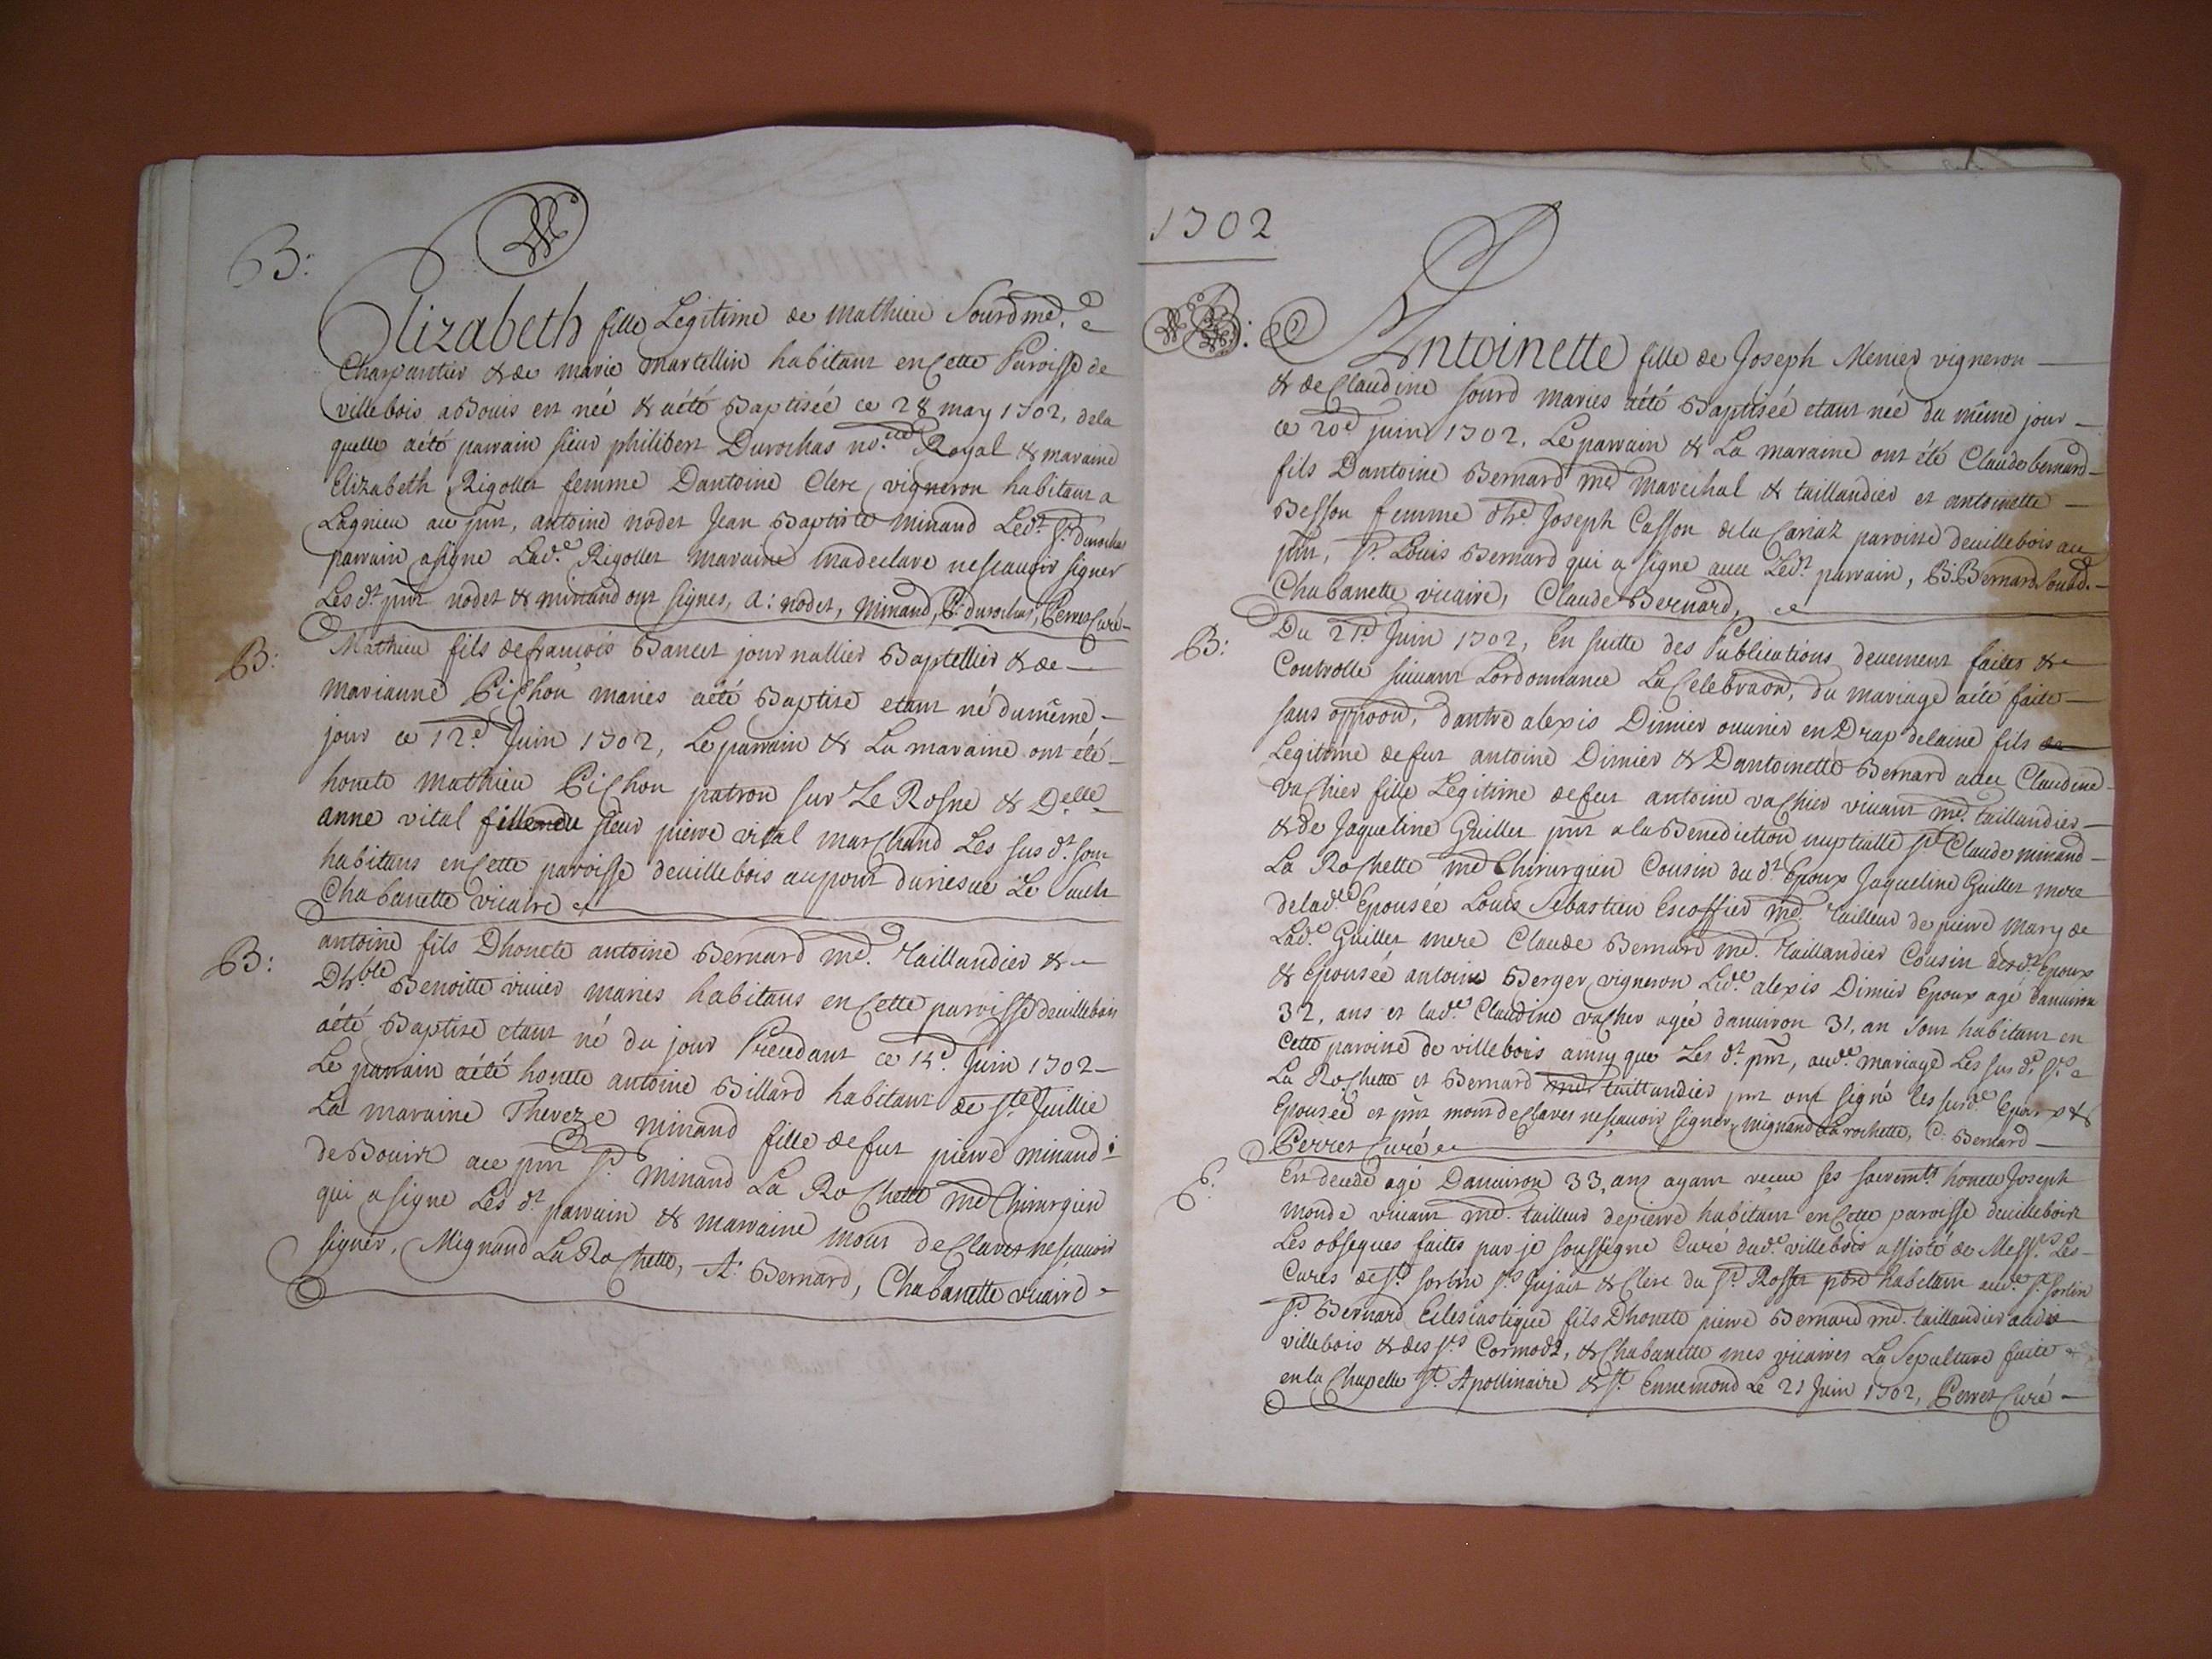 B:
Elizabeth fille Legitime de mathieu Sourd md.
Charpantier & de marie martellin habitant en Cette Paroisse de
villebois a Bouis est née & a été Baptisée ce 28 may 1702, de la
quelle a été parrain sieur philibert Durochas no.re Royal & maraine
Elizabeth Rigollet femme Dantoine Clerc vigneron habitant a
Lagnieu au pnt, antoine nodet Jean Baptiste minand Ledt. Sr. durochas
parrain a signe Lade. Rigollet maraine declare ne scauoir signer
Les dt. pnt nodet & minand ont signes, a: nodet, Minand, P. durochas, Perret Curé
B:
Mathieu fils de francois Bancet journallier Baptellier & de
marianne Pichon maries a été Baptisé etant né du même
jour ce 12e Juin 1702, Le parrain & La maraine ont été
honete mathieu Pichon patron sur Le Rosne & Delle
anne vital sieur pierre vital marchand Les sus dt. sont
habitans en Cette paroisse de uillebois au Le Sault
Chabanette vicaire
B:
antoine fils Dhonete antoine Bernard md. Taillandier &
Dhble Benoitte viuier maries habitans en Cette paroisse de uillebois
a été Baptisé etant né du jour Precedant ce Juin 1702
Le parrain a été honete antoine Billard habitant de Ste Juillie
La maraine Thereze minand fille de fut pierre minand
de Bouis au pnt Sr. minand La Rochette md Chirurgien
qui a signe Les dt. parrain & marraine declares ne scauoir
signer, Mignand La Rochette, A. Bernard, Chabanette vicaire
1702
B:
Antoinette fille de Joseph Menier vigneron
& de Claudine sourd maries a été Baptisée etant née du même jour
ce 20e juin 1702. Le parrain & La maraine ont été Claude bernard
fils Dantoine Bernard md marechal & taillandier et antoinette
Besson femme dhte Joseph Casson de la Cariaz paroisse de uillebois au
pnt, Sr. Louis Bernard qui a signe auec Ledt. parrain, B. Bernard
Chabanette vicaire, Claude Bernard,
B:
Du 21e Juin 1702, En suitte des Publications deuement faites &
Controlle suiuant Lordonnance La Celebraon, du mariage a été faite
sans oppoon, dantre alexis Dimier ouurier en Drap de laine fils de
Legitime de fut antoine Dimier & Dantoinette Bernard auec Claudine
vachier fille Legitime de fut antoine vachier viuant md. taillandier
& de Jaqueline Guillet pnt a la Benediction nuptialle Sr Claude minand
La Rochette md Chirurgien Cousin du dt. Epoux Jaqueline Guillet mere
de lade. Epousée Louis Sebastien Escoffier md. Tailleur de pierre Mary de
Lade. Guillet mere Claude Bernard md. Taillandier Cousin des dt. Epoux
& Epousée antoine Berger vigneron Alexis Dimier Epoux agé danuiron
32, ans et lade. Claudine vacher agée danuiron 31, an sont habitant en
Cette paroisse de villebois ainsy que Les dt. pnt, aude. mariage Les sus dt. Sr.
La Rochette et Bernard md taillandier pnt ont signé les susd. Epoux &
Epousée et pnt declares ne scauoir signer, mignand La rochette, C. Bernard
Perret Curé
Est decede agé Danuiron 33, ans ayant receu ses sacremts. honete Joseph
monde viuant md. tailleur de pierre habitant en Cette paroisse de uillebois
Les obseques faites par je soussigne Curé dud. villebois assisté de Messrs. Les
Cures de St. sorlin & Clerc du Sr. Rosset pbre habitant aud. St. sorlin
Sr. Bernard Eclesiastique fils Dhonete pierre Bernard md. taillandier
villebois & des Srs Cormodz, & Chabanette mes vicaires La Sepulture faite
en la Chapelle St. Apollinaire & St. Ennemond Le 21 Juin 1702, Perret Curé